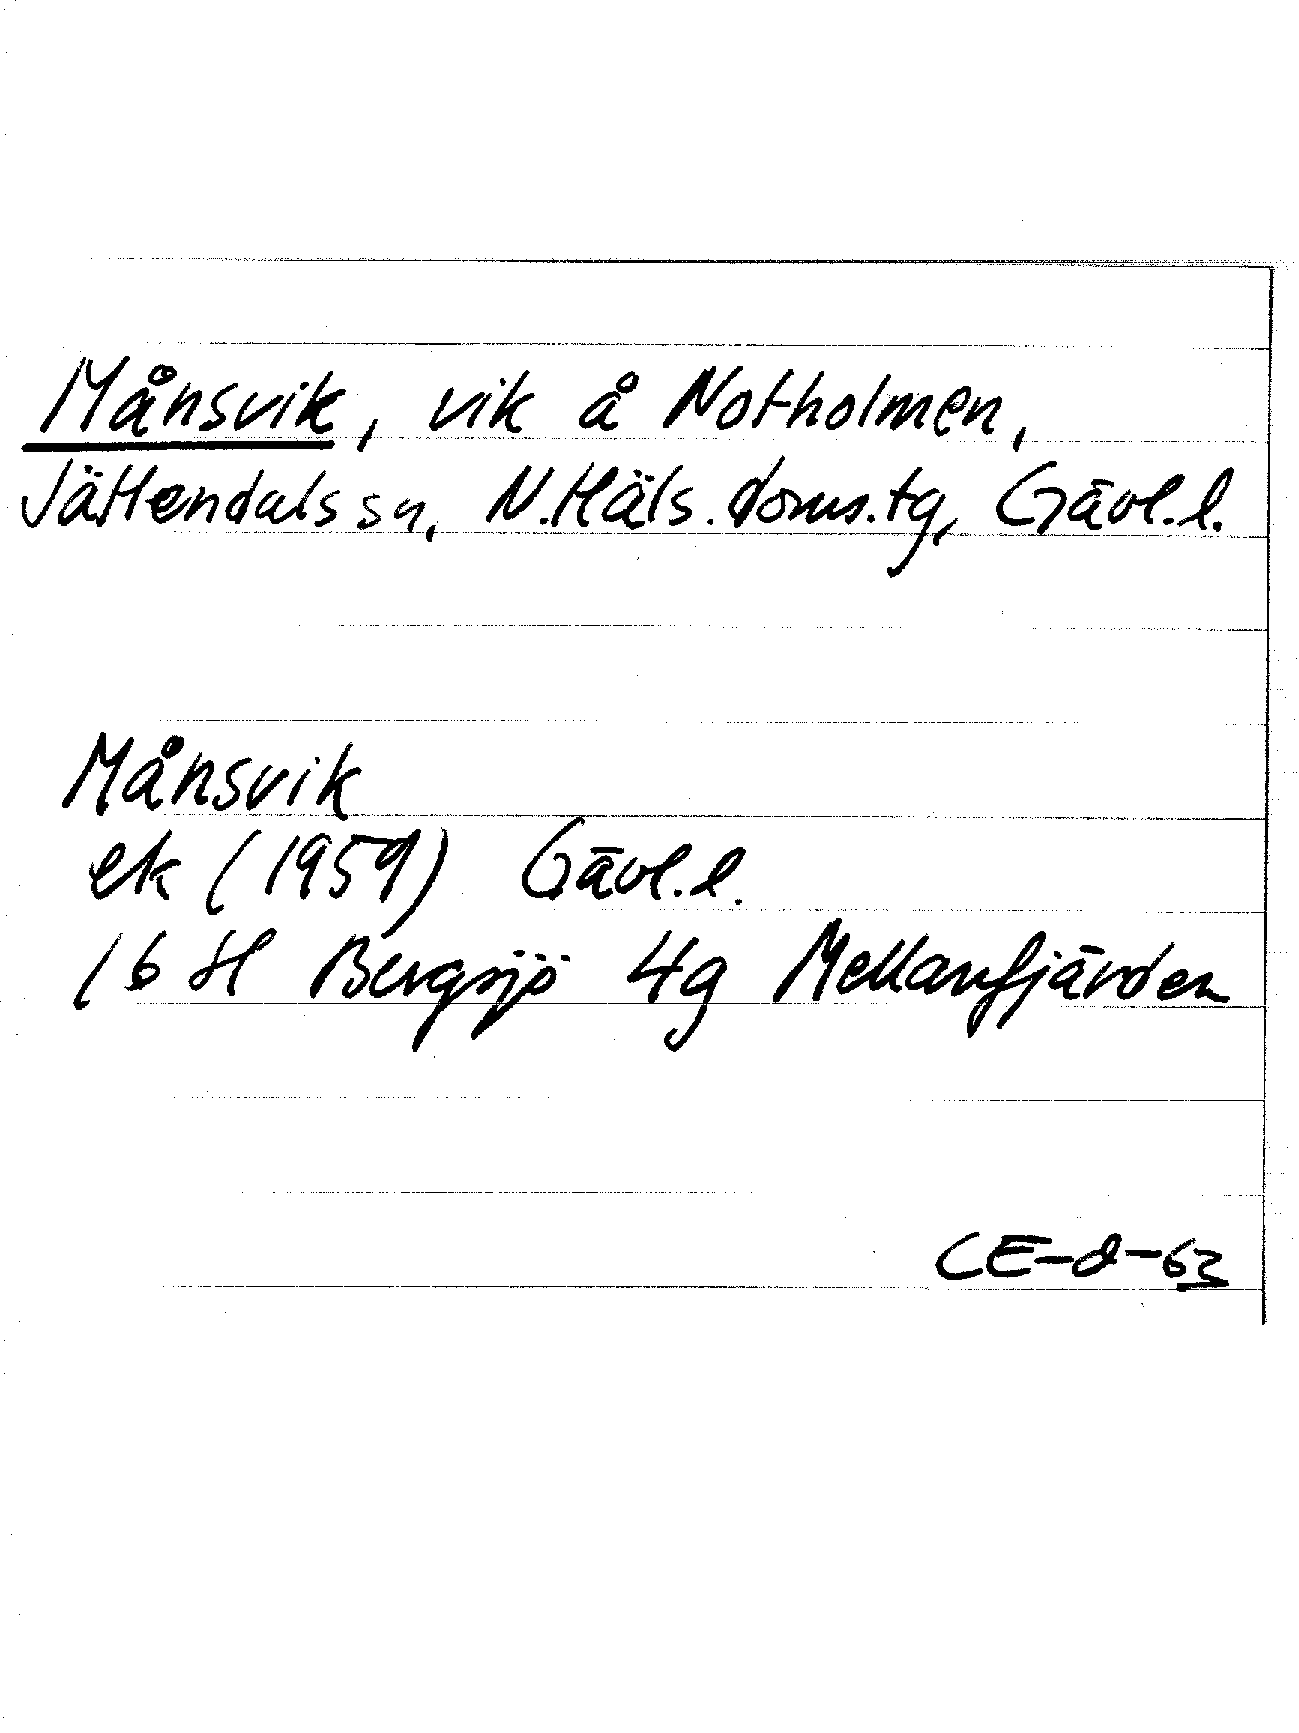 Månsvik, vik å Notholmen,
Jättendals sn, N.Häls.doms.tg, Gävl.l.
Månsvik
ek (1959) Gävl.l.
16 H Bergsjö 4g Mellanfjärden
CE-d-63